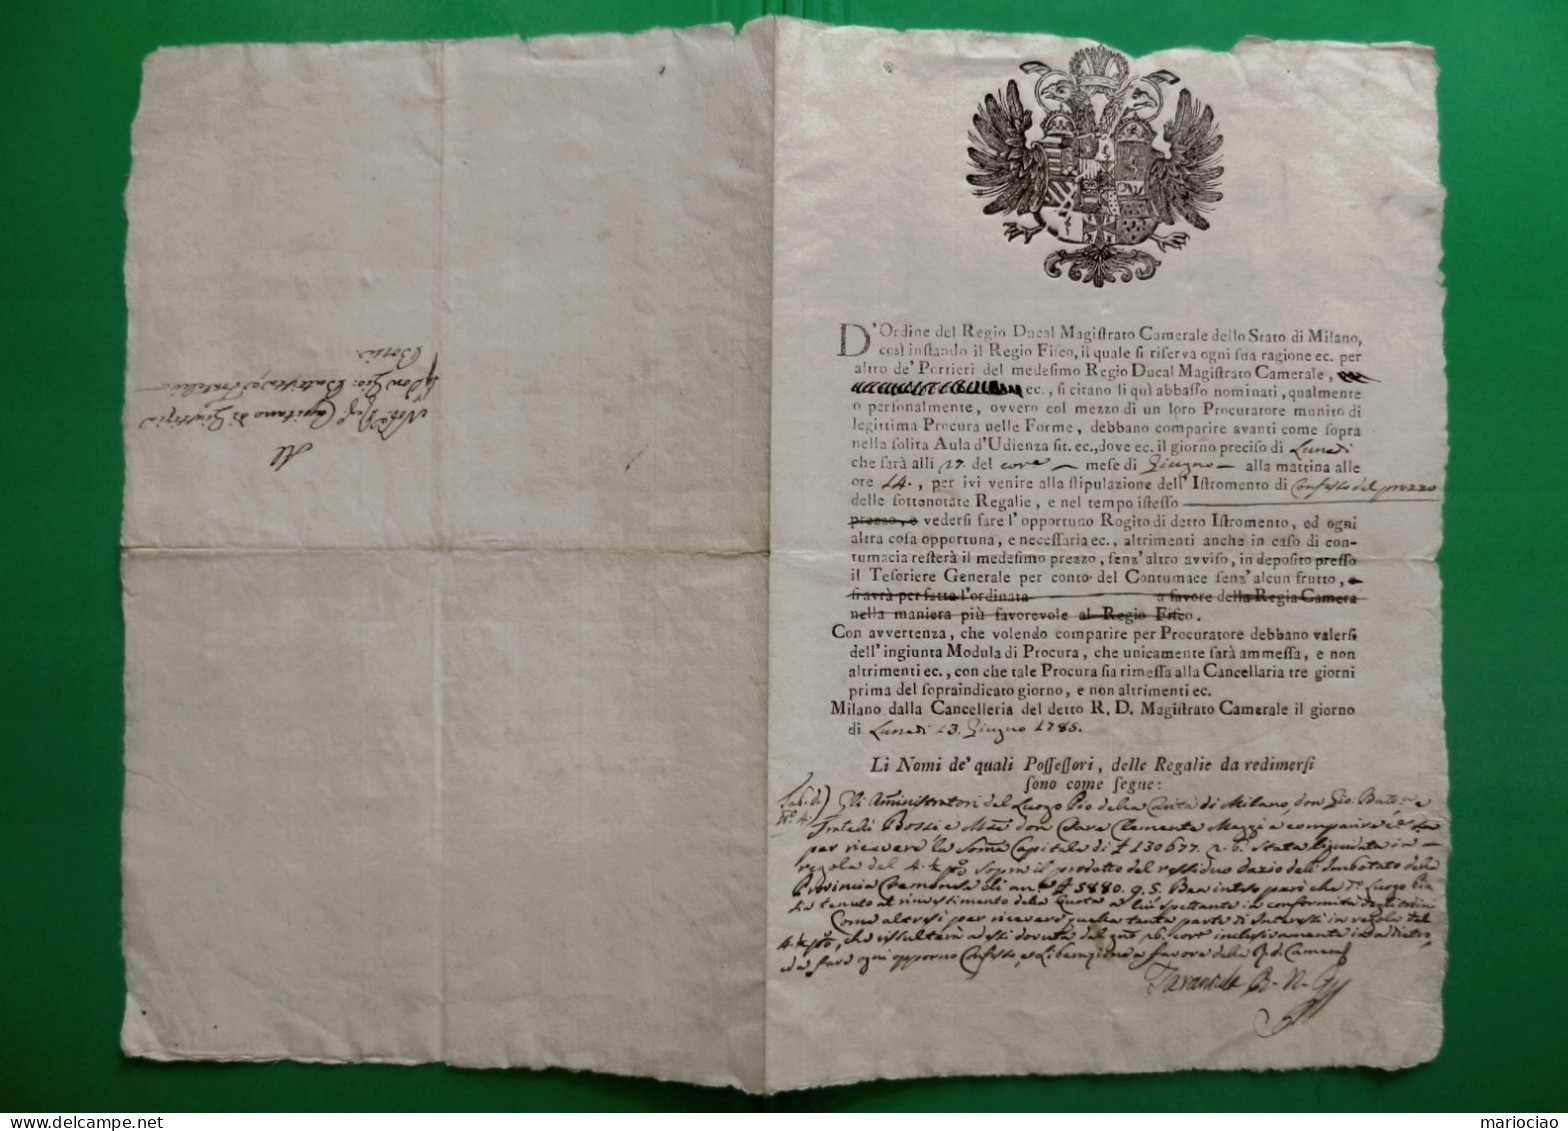 D'Ordine del Regio Ducal Magiſtrato Camerale dello Stato di Milano,
così inſtando il Regio Fiſco, il quale ſi riſerva ogni ſua ragione ec. per
altro de' Portieri del medeſimo Regio Ducal Magiſtrato Camerale,
ec., ſi citano li quì abbaſſo nominati, qualmente
o perſonalmente, ovvero col mezzo di un loro Procuratore munito di
legittima Procura nelle Forme, debbano comparire avanti come ſopra
nella ſolita Aula d'Udienza ſit. ec., dove ec. il giorno preciſo di Lunedì
che ſarà alli 27. del corr.e mese di Giugno alla mattina alle
ore 14., per ivi venire alla ſtipulazione dell'Iſtromento di Confesso del prezzo
delle ſottonotate Regalie, e nel tempo iſteſſo
prezzo, e vederſi fare l'opportuno Rogito di detto Iſtromento, ed ogni
altra coſa opportuna, e neceſſaria ec., altrimenti anche in caſo di con-
tumacia reſterà il medeſimo prezzo, ſenz'altro avviſo, in depoſito preſſo
il Teſoriere Generale per conto del Contumace ſenz'alcun frutto, e
ſi avrà per fatta l'ordinata a favore della Regia Camera
nella maniera più favorevole al Regio Fiſco.
Con avvertenza, che volendo comparire per Procuratore debbano valerſi
dell'ingiunta Modula di Procura, che unicamente ſarà ammeſſa, e non
altrimenti ec., con che tale Procura ſia rimeſſa alla Cancellaria tre giorni
prima del ſopraindicato giorno, e non altrimenti ec.
Milano dalla Cancelleria del detto R. D. Magiſtrato Camerale il giorno
di Lunedì 13. Giugno 1785.
Li Nomi de' quali Poſſeſſori, delle Regalie da redimerſi
ſono come ſegue:
Gli Amministratori del Luogo Pio della Carità di Milano, don Gio. Batta e
Fratelli Bossi e don Clemente Maggi a comparire
per ricevere la Somma Capitale di 130677. 2. 6. Stata liquidata in
regola del 4. sopra il prodotto del residuo dazio dell'Imbottato della
Provincia Cremonese di 5880. 9. 5. Ben inteso però che Luogo Pio
sia tenuto al rinvestimento della Quota a lui spettante in conformità degli ordini
Come altresì per ricevere quella tanta parte di Interessi in regola del
4. che risulterà
da fare ogni opportuno Confesso, e Liberazione a favore della R. d. Camera
Al
Capitano di Giustizia
Don Gio: Batta e Fratelli
Bossi
mariociao